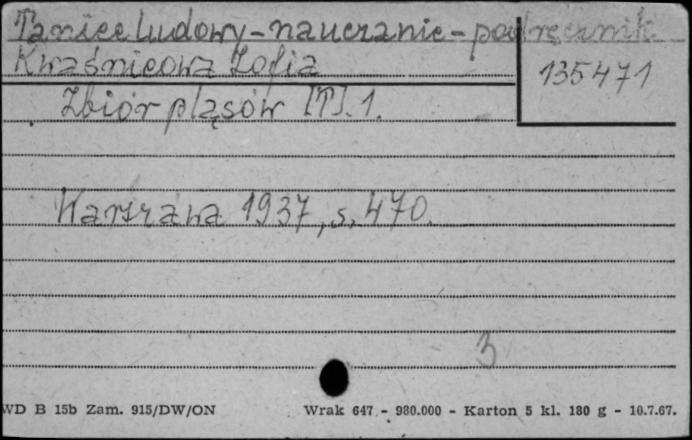 Taniec ludowy-nauczanie-podręcznik
Kwaśnicowa Zofia
135471
Zbiór pląsów [T]. 1.
Warszawa 1937, s. 470.
3
WD B 15b Zam. 915/DW/ON Wrak 647 - 980.000 - Karton 5 kl. 180 g - 10.7.67.